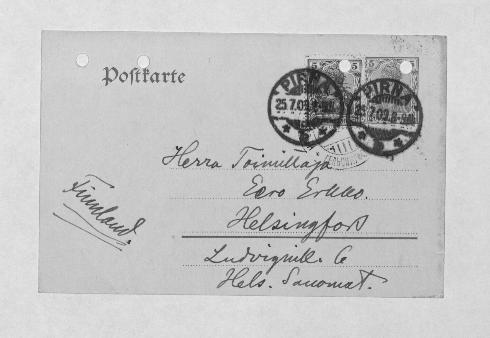 Postkarte
5 5
5
PIRNA
25.7.09.8-9N.
PIRNA
25.7.09.8-9N.
Herra Toimittaja
Eero Erkko.
Helsingfors
Finnland.
Ludvigsill. 6
Hels. Sanomat.